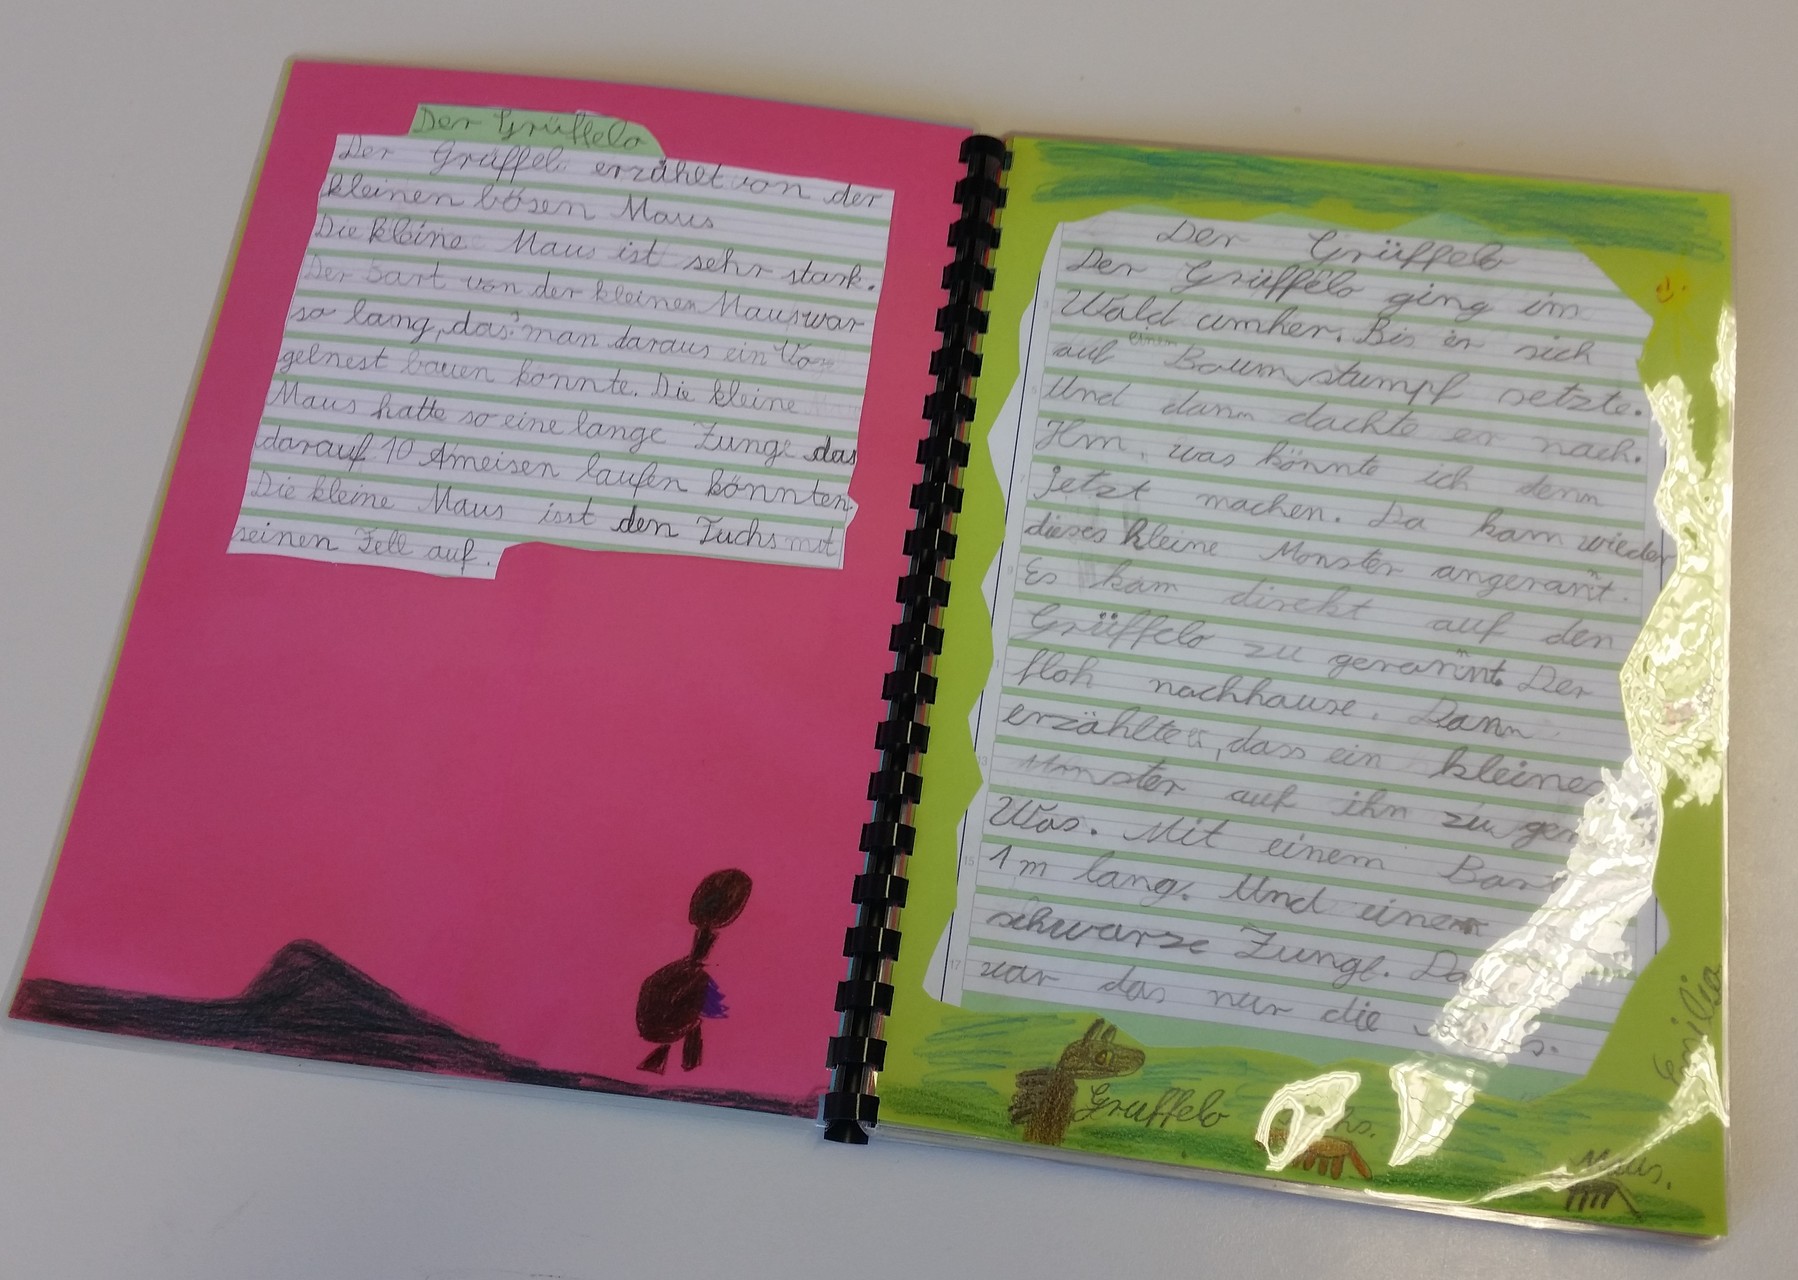 Der Grüffelo
Der Grüffelo erzählt von der
kleinen bösen Maus
Die kleine Maus ist sehr stark.
Der Bart von der kleinen Maus war
so lang, das man daraus ein Vo-
gelnest bauen konnte. Die kleine
Maus hatte so eine lange Zunge das
darauf 10 Ameisen laufen könnten.
Die kleine Maus isst den Fuchs mit
seinen Fell auf.
Der Grüffelo
Der Grüffelo ging im
Wald umher. Bis er sich
auf einen Baumstumpf setzte.
Und dann dachte er nach.
Hm, was könnte ich denn
jetzt machen. Da kam wieder
dieses kleine Monster angerannt.
Es kam direkt auf den
Grüffelo zu gerannt. Der
floh nachhause. Dann
erzählte er, dass ein kleines
Monster auf ihn zu
Was. Mit einem
1m lang. Und einer
schwarze Zunge.
war das nur die
Grüffelo
Maus.
Emilia